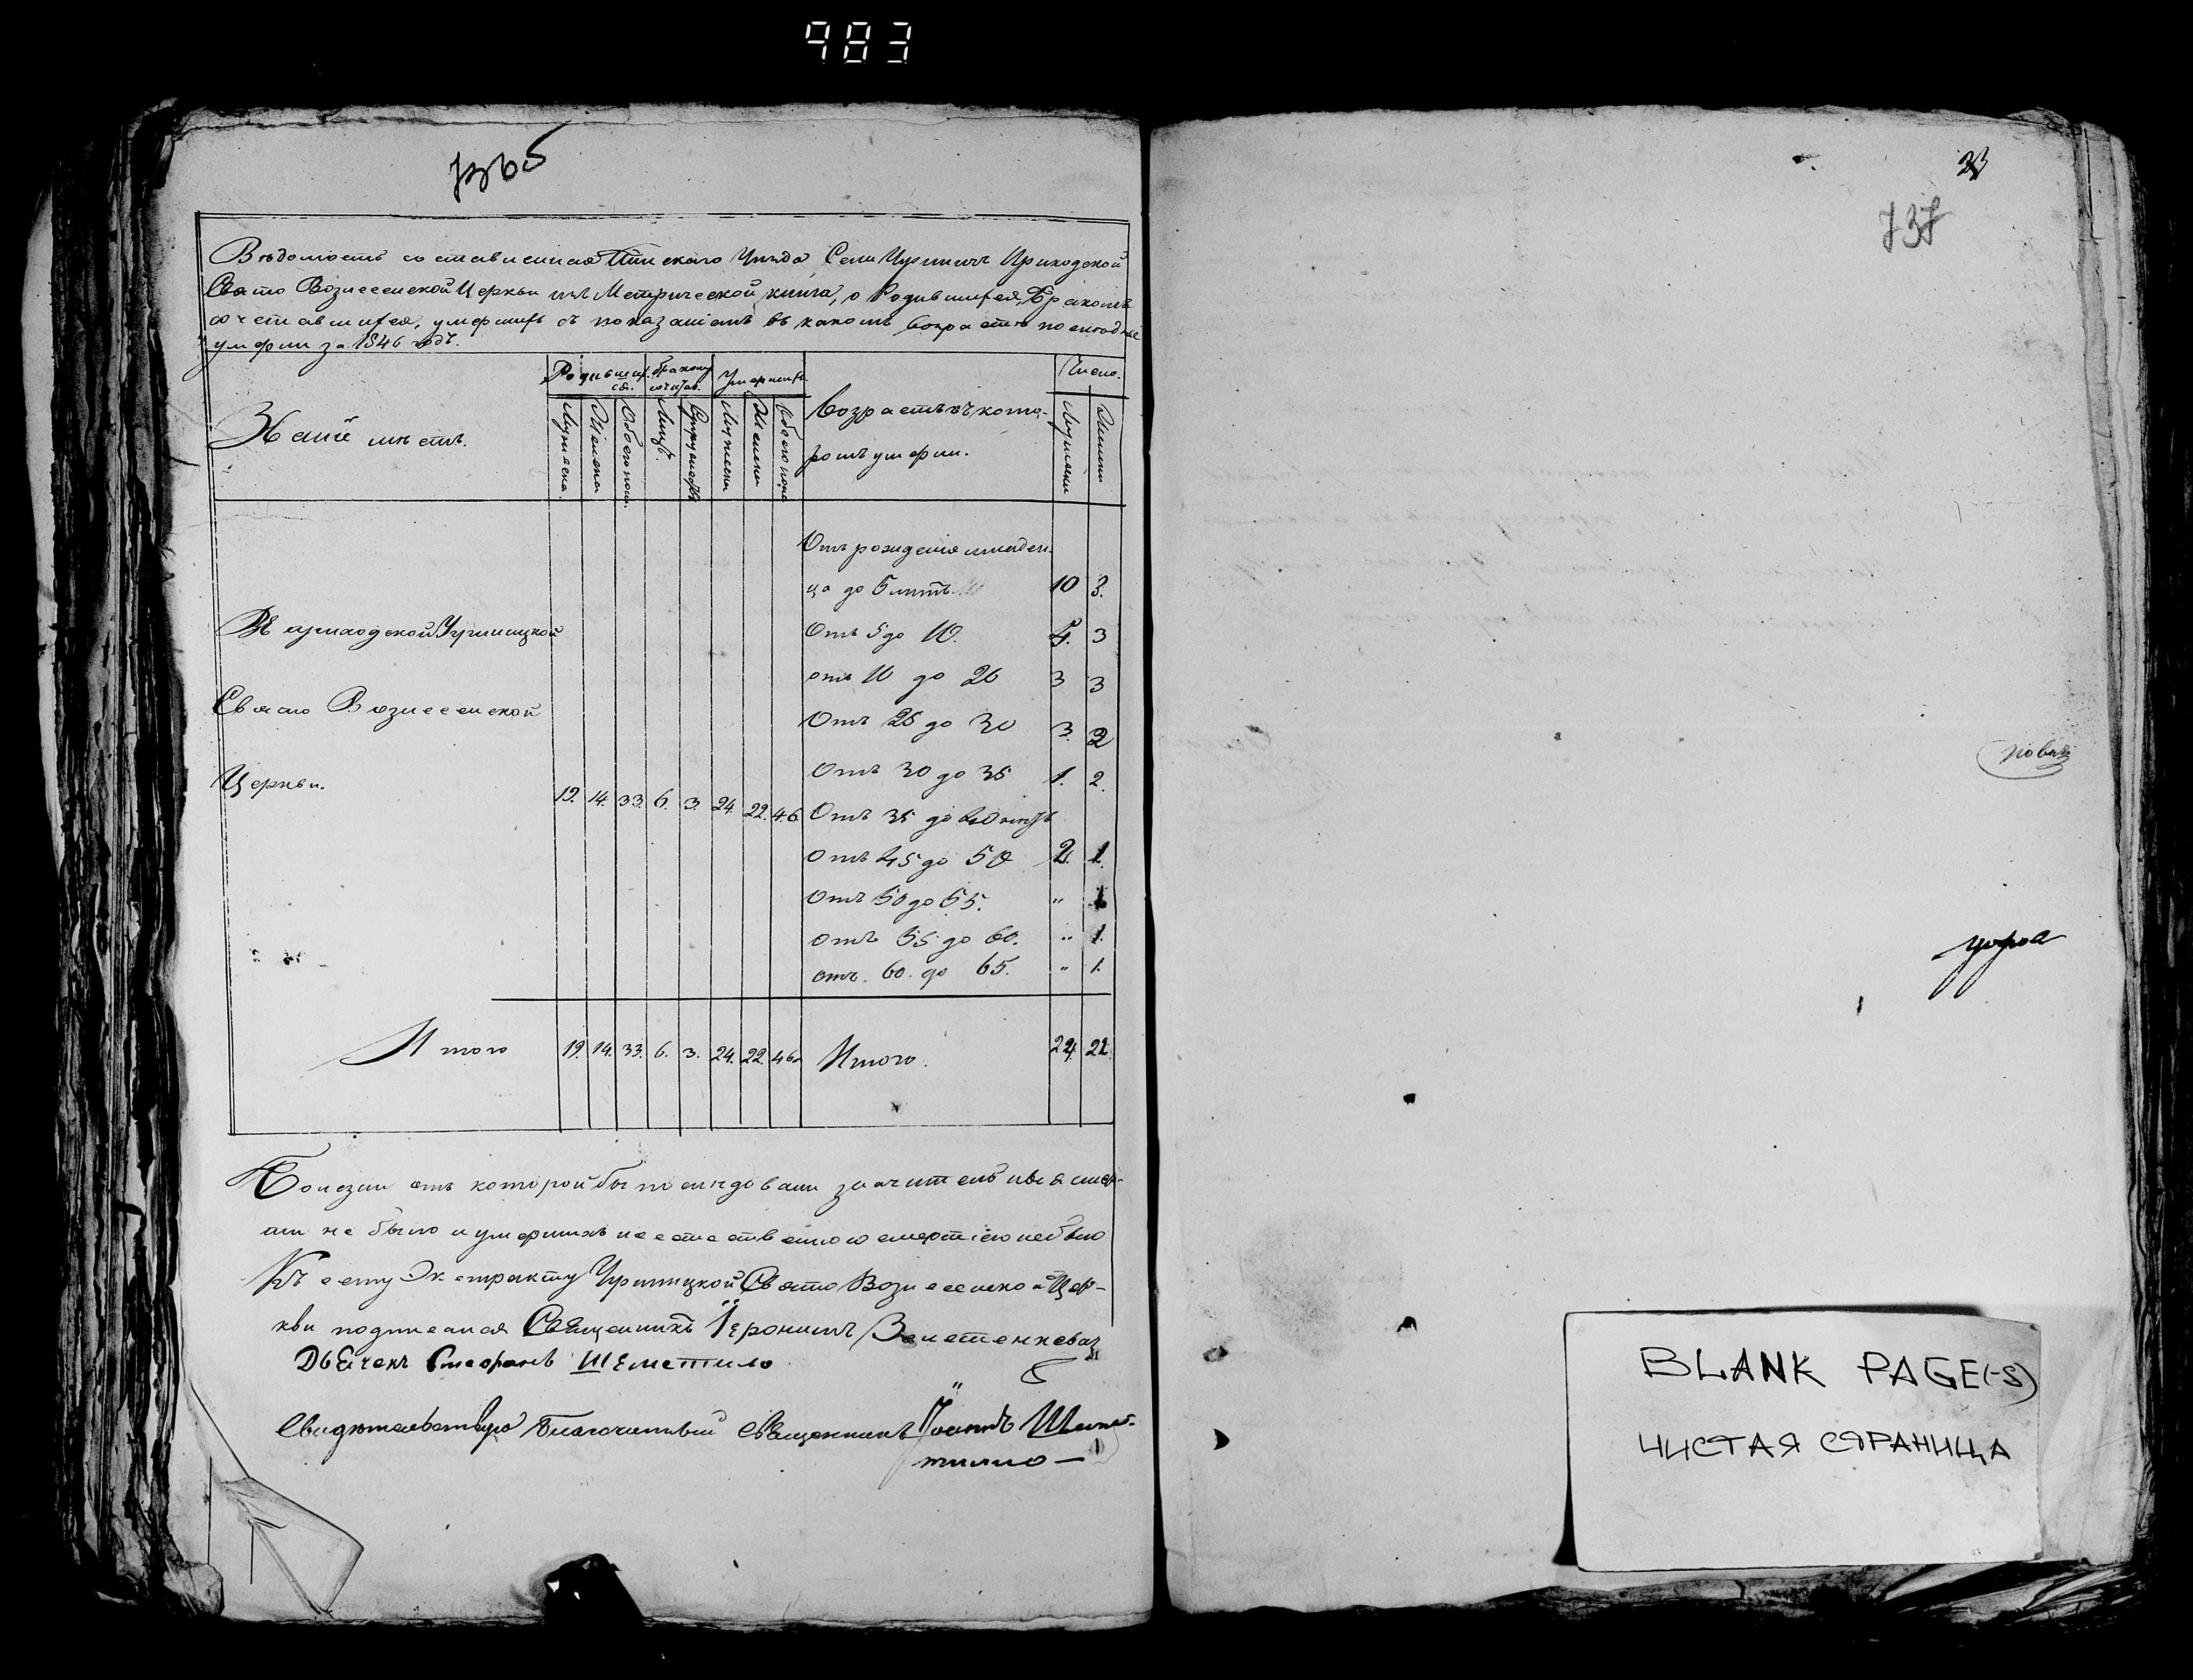 983
736б
Вѣдомость составленная Пинскаго Уѣзда Села Приходской
Свято Вознесенской Церкви изъ Метрической книги, о Родившихся, Бракомъ
сочетавшихся, умершихъ съ показаніемъ въ какомъ возрастѣ
умерли за 1846 годъ.
Родивших. ся. Браком сочетав. Умерших. Число.
мѣстъ.
Мужеска Женска Обоего пола Лицъ Супружествъ Мужеска Женска Обоего пола Возрастъ въ кото- Мужески Женски
ромъ умерли.
Отъ рожденія младен-
ца до 5 лѣтъ 10 3.
Въ приходской
Отъ 5 до 10. 5. 3
отъ 10 до 20 3 3
Свято Вознесенской
Отъ 25 до 30 3. 3
Церкви.
Отъ 30 до 35 1. 2.
19. 14. 33. 6. 3. 24. 22. 46
Отъ 35 до 40
Отъ 45 до 50 2. 1.
Отъ 50 до 55. " 1
отъ 55 до 60. " 1.
отъ. 60. до 65. " 1.
Итого 19. 14. 33. 6. 3. 24. 22. 46. Итого. 24. 22.
Болезни отъ которой бы послѣдовали значительныя смер-
ти не было и умершихъ неестественною смертію небыло
Къ сему Экстракту Свято Вознесенской Цер-
кви подписался Священникъ Іеронимъ
Дьячекъ Стефанъ Шеметило
Свидѣтельствую Благочинный Священникъ Іоаннъ Шеме-
тилло —
23
737
BLANK PAGE(-S)
ЧИСТАЯ СТРАНИЦА